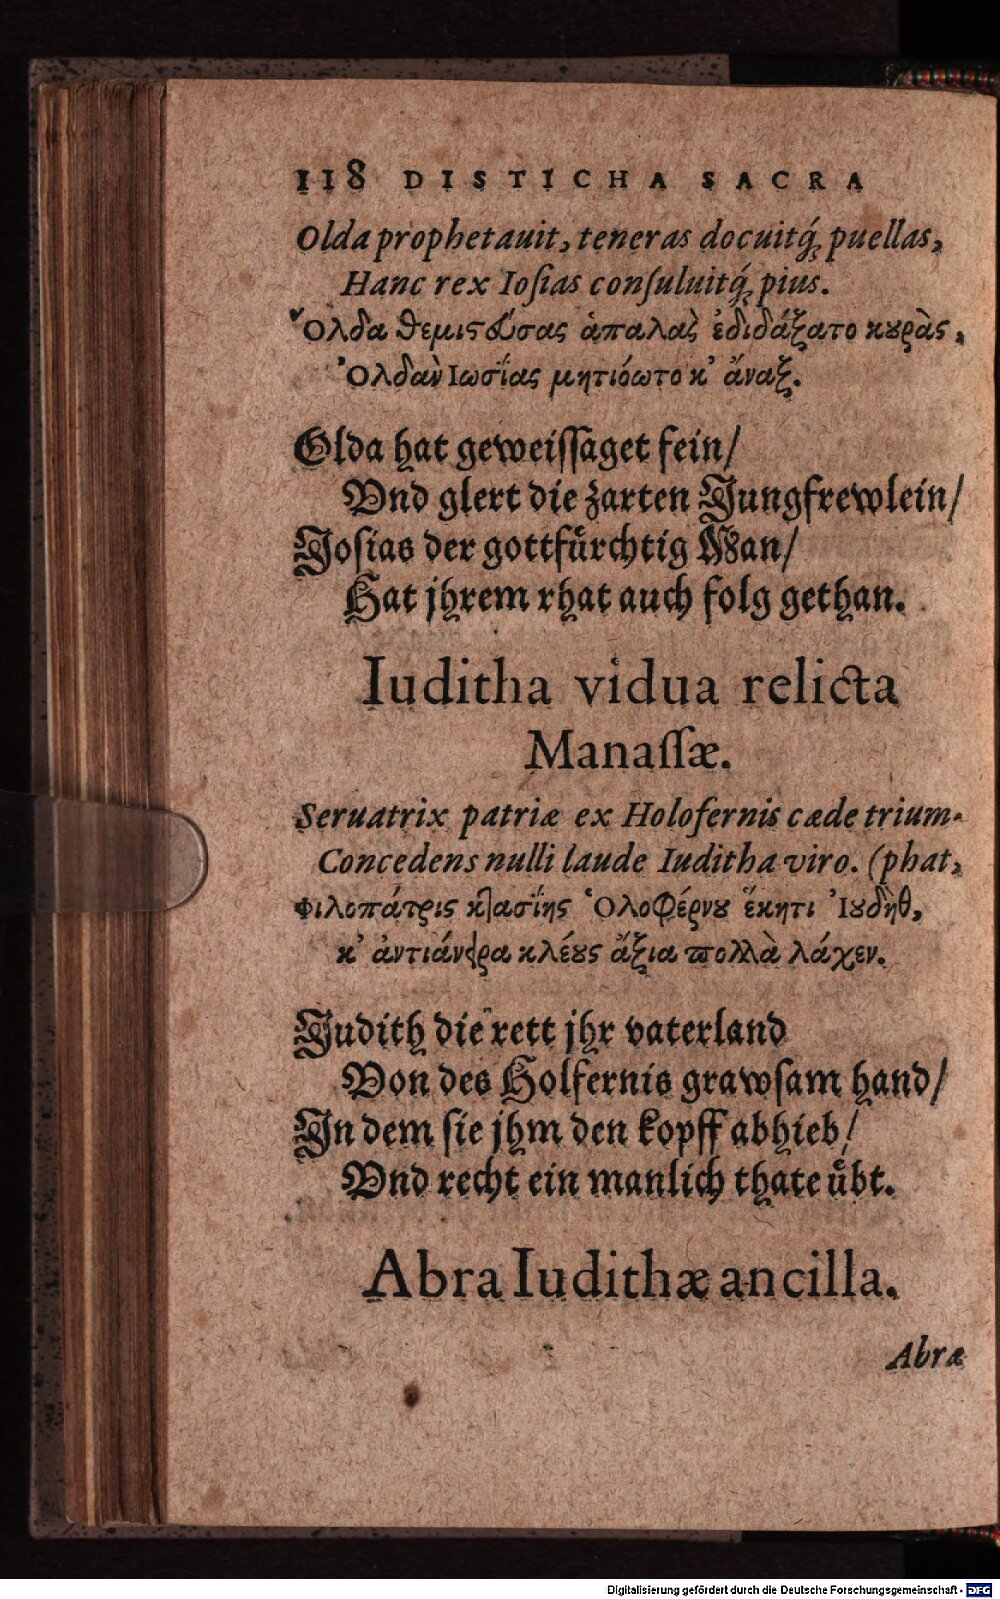 118 DISTICHA SACRA
Olda prophetauit, teneras docuitq́; puellas,
Hanc rex Iosias consuluitq́; pius.
Ὄλδα θεμιστεύσας ἁπαλὰς ἐδιδάξατο κουρὰς,
Ὀλδὰν Ἰωσίας μητιόωτο κ' ἄναξ.
Olda hat geweissaget fein/
Vnd glert die zarten Jungfrewlein/
Josias der gottfürchtig Man/
Hat jhrem rhat auch folg gethan.
Iuditha vidua relicta
Manassæ.
Seruatrix patriæ ex Holofernis cæde trium-
Concedens nulli laude Iuditha viro. (phat,
Φιλοπάτρις Ὁλοφέρνου ἕκητι Ἰουδὴθ,
κ' ἀντιάνδρα κλέους ἄξια πολλὰ λάχεν.
Judith die rett jhr vaterland
Von des Holfernis grawsam hand/
In dem sie jhm den kopff abhieb/
Vnd recht ein manlich thate übt.
Abra Iudithæ ancilla.
Abræ
Digitalisierung gefördert durch die Deutsche Forschungsgemeinschaft - DFG